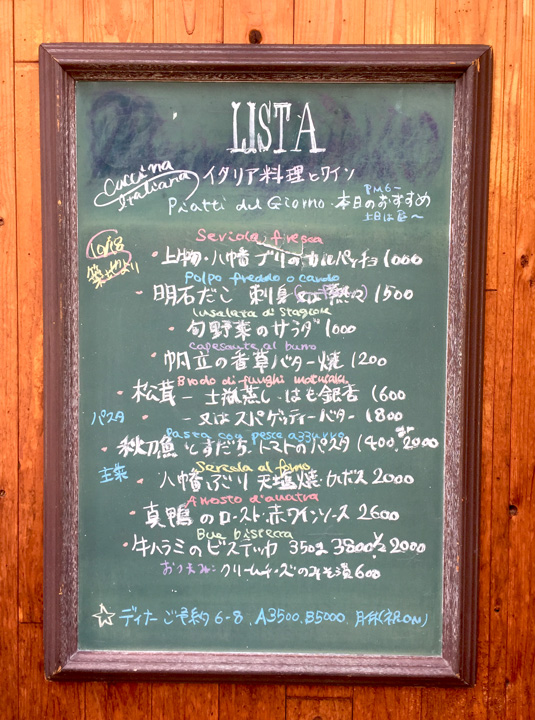 LISTA
Cuccina
Italiana
イタリア料理とワイン
PM6~
Piatti del Giorno・本日のおすすめ
土日は昼〜
10/18
築地より
Seriola fresca
・上物・八幡ブリのカルパッチョ 1000
Polpo freddo o caldo
・明石だこ 刺身 又は 1500
Insalata di Stagione
・旬野菜のサラダ 1000
capesante al burro
・帆立の香草バター焼 1200
Brodo di funghi matsutake
・松茸 ー 土瓶蒸し・はも銀杏 1600
パスタ
・ ー 又はスパゲッティーバター 1800
Pasta con pesce azzurro
・秋刀魚とすだち・トマトのパスタ 1400 2000
主菜
Seriola al forno
・八幡ぶり 天塩焼・カボス 2000
Arrosto d'anatra
・真鴨のロースト・赤ワインソース 2600
Bue bistecca
・牛ハラミのビステッカ 350g 3800 ½ 2000
おつまみ: クリームチーズのみそ漬 600
☆ ディナーご予約 6-8、A3500、B5000、月休(祝ON)